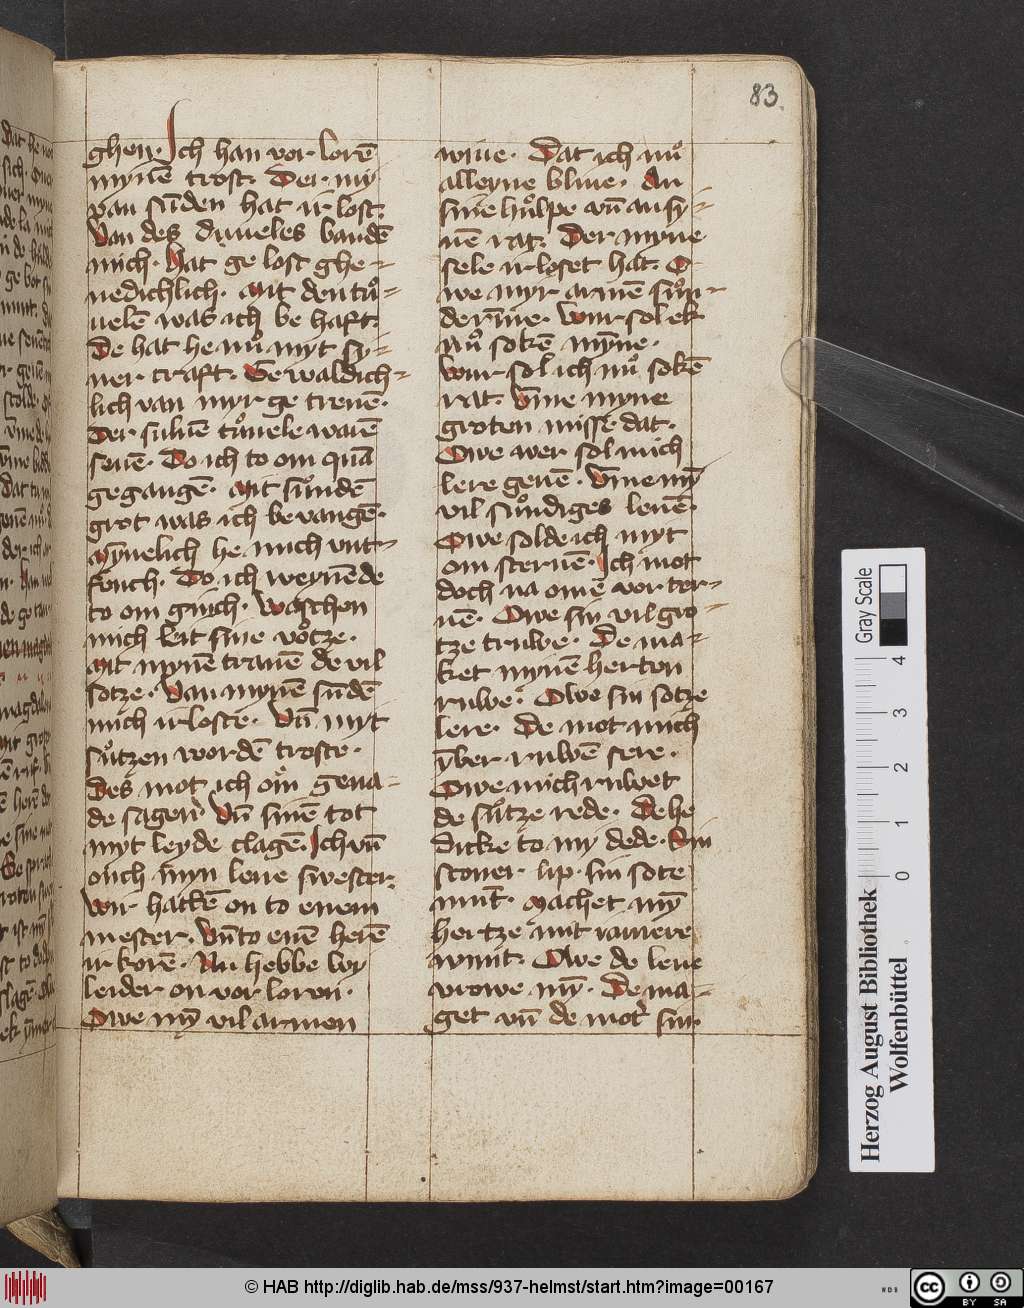 83.
ghen. Ich han vor lorē
mynē trost. Der. my
van sūden hat ir lost.
Van des duueles bandē
mich. Hat ge lost ghe-
nedichlich. Mit den tuͦ-
uelē was ich be haft.
De hat he nuͦ myt sy-
ner craft. Ge waldich-
lich van myr ge treuē.
Der suluē tuͦuele warē
seuē. Do ich to om quā
gegangē. Mit suͦndē
grot was ich be vangē.
Mȳnelich he mich vnt-
fonch. Do ich weynēde
to om ginch. Waschen
mich leit sine voͦtze.
Mit mynē tranē de vil
sotze. Van mynē sūdē
mich irloste. Vn̄ myt
suͦtzen wordē troste.
Des mot ich om̄ gena-
de sagen Vn̄ sinē tot
myt leyde clagē. Ich vn̄
ouch myn leue swester.
Wir hattē on to enem
mester. Vn̄ to enē herē
ir korē. Nu hebbe wy
leider on vor lorn.
Owe mȳ vil armen
wiue. Dat ich nuͦ
alleyne bliue. An
sine huͦlpe vn̄ an sy-
nē rat. Der myne
sele ir loset hat. O
we myr armē suͦn-
derīne. Wur sol ek
nuͦ sokē mȳne.
Wur sol ich nuͦ sokē
rat. Vm̄e myne
groten missedat.
Owe wer sol mich
lere geuē. Vm̄e mȳ
vil suͦndiges leuē.
Owe solde ich myt
om steruē. Ich mot
doch na ome vor ter-
nē. Owe sin vil gro-
tze truwe. De ma-
ket mynē herten
ruwe. Owe sin sotze
lere. De mot mich
yber ruwē sere.
Owe mich ruwet
de suͦtze rede. De he
dicke to my dede. Sin
sconer lip. sin sote
mūt. Machet mȳ
hertze mit iamere
wunt. Owe de leue
vrowe mȳ. De ma-
get vn̄ de mot' sin.
Gray Scale
4
3
2
1
0
Herzog August Bibliothek
Wolfenbüttel
© HAB http://diglib.hab.de/mss/937-helmst/start.htm?image=00167
WDB
cc
BY SA